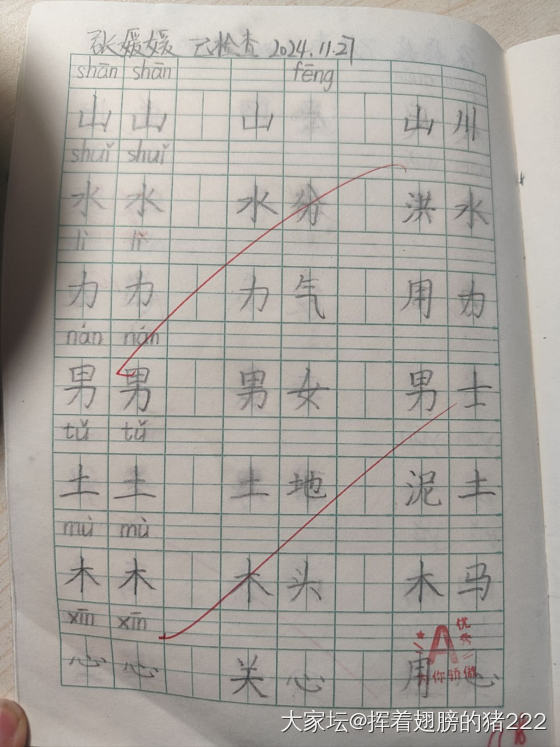 张媛媛 已检查 2024.11.27
shān shān fēng
山 山 山 山 川
shuǐ shuǐ
水 水 水 分 洪 水
lì lì
力 力 力 气 用 力
nán nán
男 男 男 女 男 士
tǔ tǔ
土 土 土 地 泥 土
mù mù
木 木 木 头 木 马
xīn xīn
心 心 关 心 用 心
A 优秀
大家坛@挥着翅膀的猪222